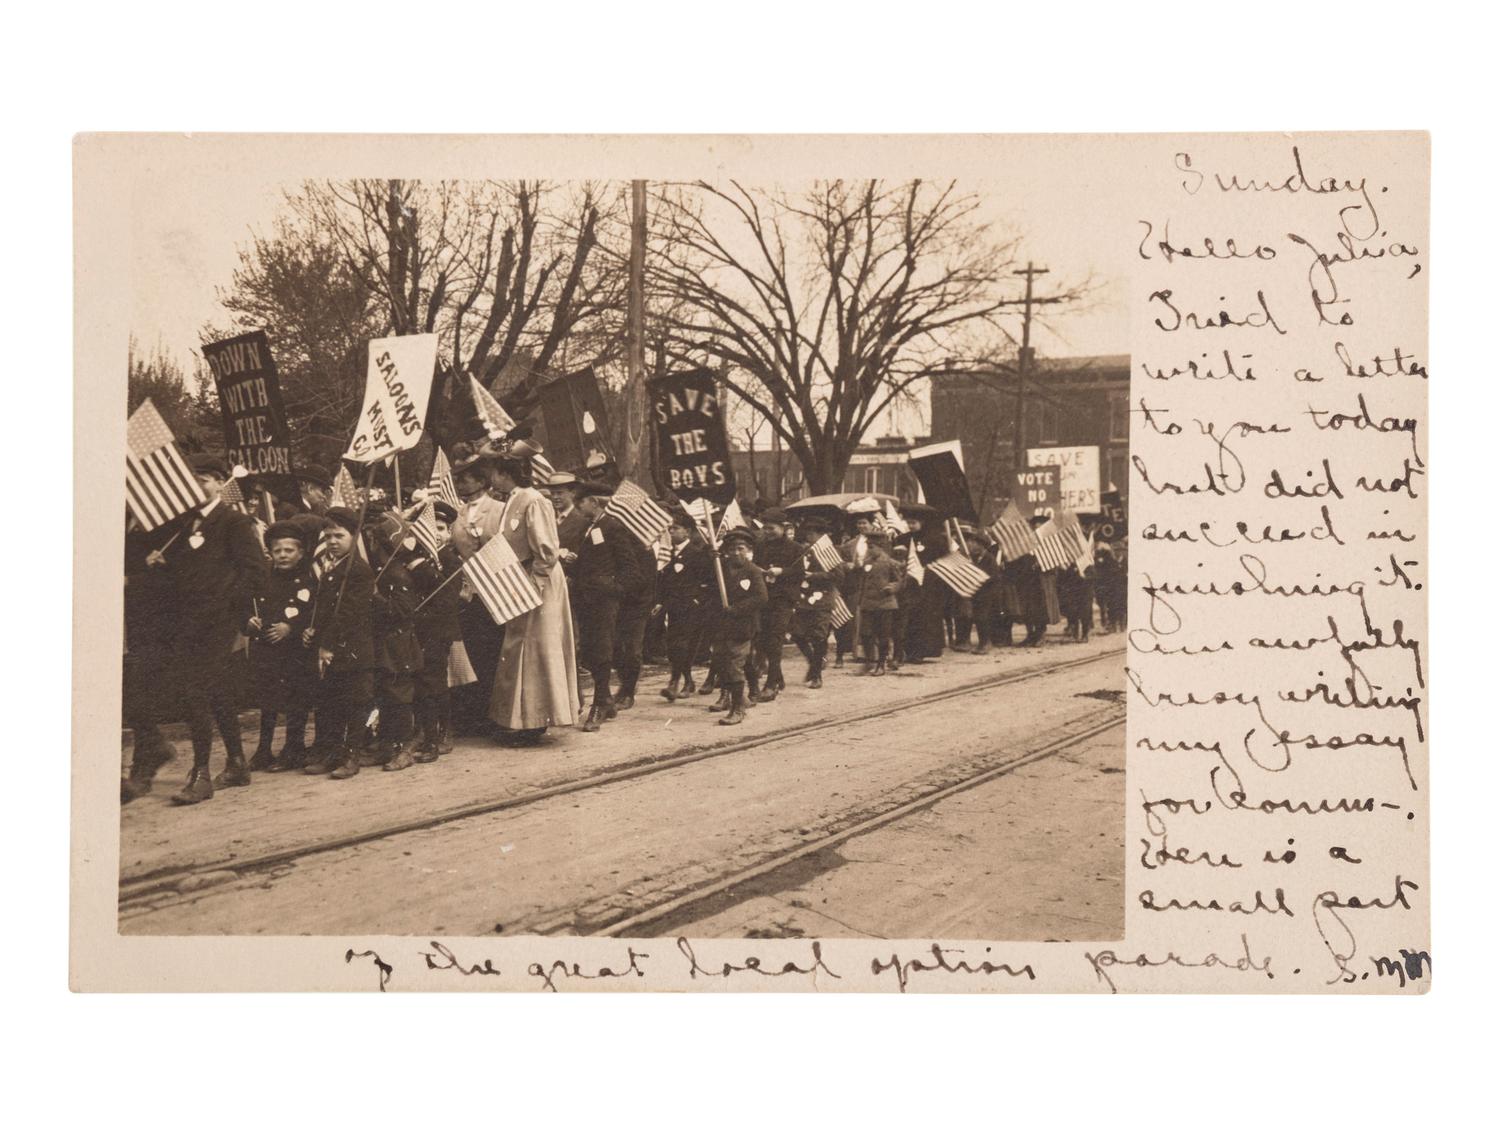 DOWN
WITH
THE
SALOON
SALOONS
MUST
GO
SAVE
THE
BOYS
VOTE
NO
NO
SAVE
HER'S
Sunday.
Hello Julia,
Tried to
write a letter
to you today
but did not
succeed in
finishing it.
Am awfully
busy writing
my essay
for Comm-.
Here is a
small part
of the great local option parade. S.M.